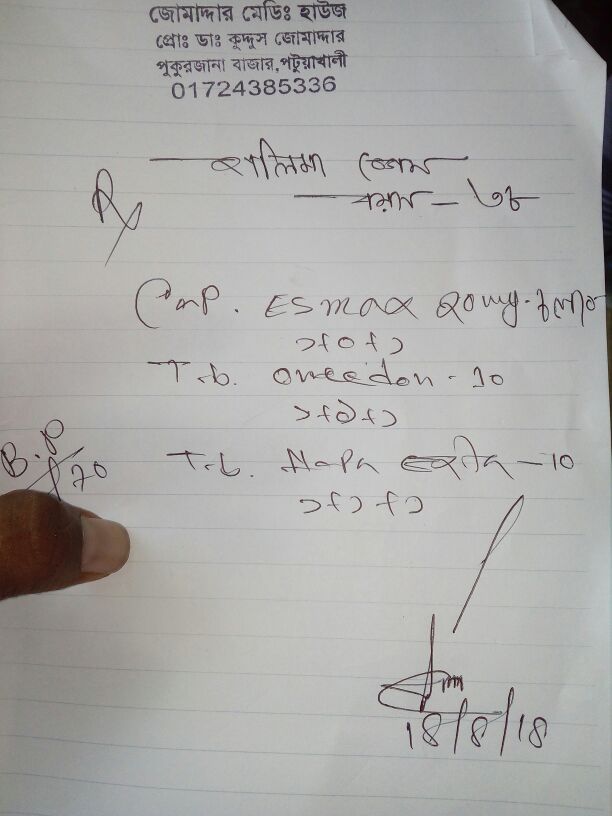 জোমাদ্দার মেডিঃ হাউজ
প্রোঃ ডাঃ কুদ্দুস জোমাদ্দার
পুকুরজানা বাজার,পটুয়াখালী
01724385336
হালিমা বেগম
Rx
বয়স - ৩৮
Cap. ESMAX 20mg.
১+০+১
Tab. Omeedon - 10
১+১+১
B.P
70
Tab. Napa - 10
১+১+১
18/8/18